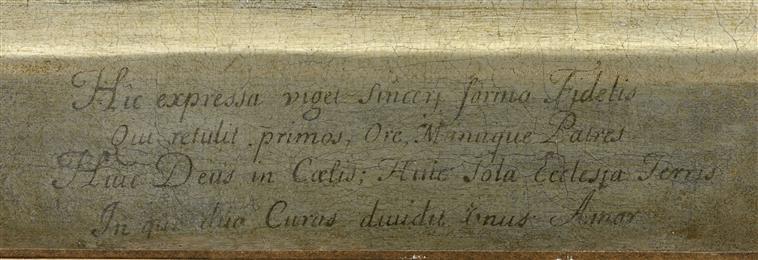 Hic expressa viget Sincerj forma Fidelis
Qui retulit primos, Ore, Manuque Patres
Huic Deus in Cœlis; Huic Sola Ecclesia Terris
In que duo Curas diuidit Vnus Amor